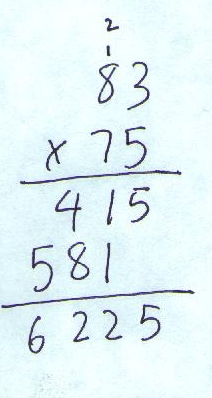 2
1
83
× 75
415
581
6225